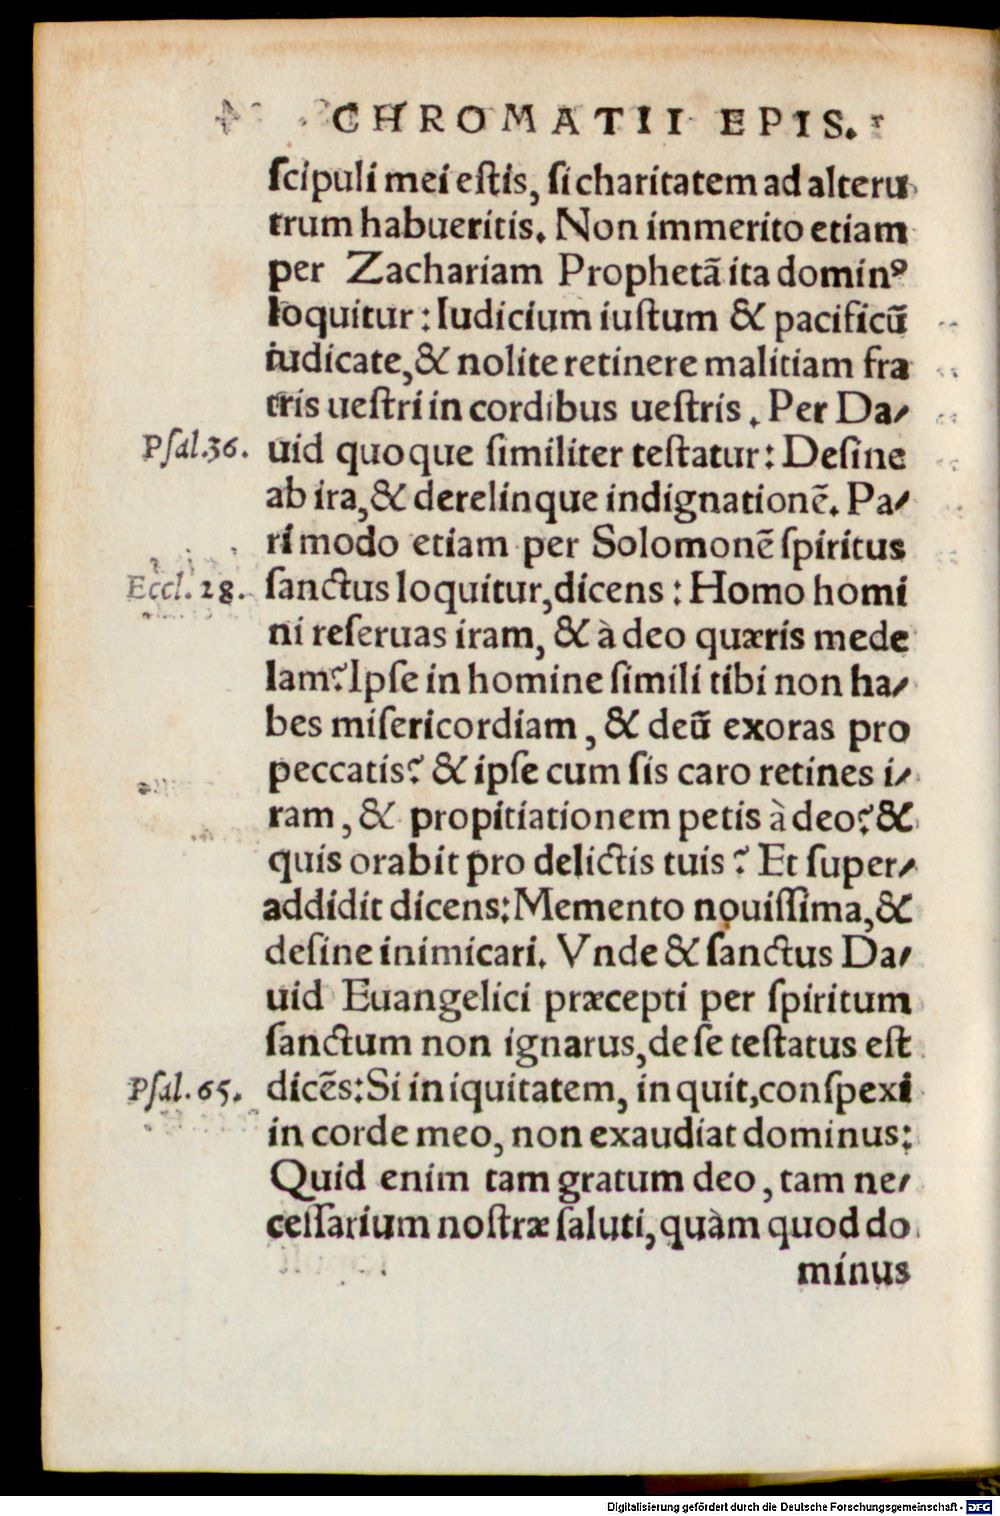 CHROMATII EPIS.
ſcipuli mei eſtis, ſi charitatem ad alteru
trum habueritis. Non immerito etiam
per Zachariam Prophetã ita dominꝰ
loquitur: Iudicium iuſtum & pacificũ
iudicate, & nolite retinere malitiam fra
tris ueſtri in cordibus ueſtris. Per Da-
Pſal.36. uid quoque ſimiliter teſtatur: Deſine
ab ira, & derelinque indignationẽ. Pa-
ri modo etiam per Solomonẽ ſpiritus
Eccl. 28. ſanctus loquitur, dicens: Homo homi
ni reſeruas iram, & à deo quæris mede
lam? Ipſe in homine ſimili tibi non ha-
bes miſericordiam, & deũ exoras pro
peccatis? & ipſe cum ſis caro retines i-
ram, & propitiationem petis à deo? &
quis orabit pro delictis tuis? Et ſuper-
addidit dicens: Memento nouiſſima, &
deſine inimicari. Vnde & ſanctus Da-
uid Euangelici præcepti per ſpiritum
ſanctum non ignarus, de ſe teſtatus eſt
Pſal. 65. dicẽs: Si iniquitatem, inquit, conſpexi
in corde meo, non exaudiat dominus:
Quid enim tam gratum deo, tam ne-
ceſſarium noſtræ ſaluti, quàm quod do
minus
Digitalisierung gefördert durch die Deutsche Forschungsgemeinschaft - DFG